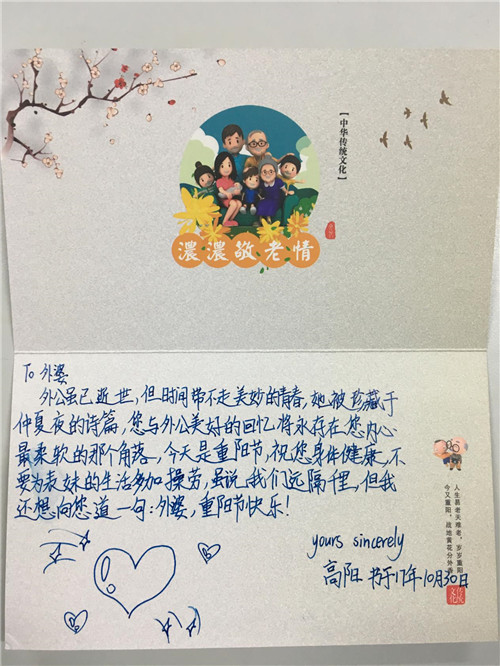 【中华传统文化】
濃濃敬老情
To 外婆
外公虽已逝世,但时间带不走美妙的青春,她被珍藏于
仲夏夜的诗篇,您与外公美好的回忆将永存在您内心
最柔软的那个角落,今天是重阳节,祝您身体健康,不
要为表妹的生活多加操劳,虽说我们远隔千里,但我
还想向您道一句:外婆,重阳节快乐!
yours sincerely
高阳 书于17年10月30日
人生易老天难老,岁岁重阳
今又重阳,战地黄花分外香
传统
文化